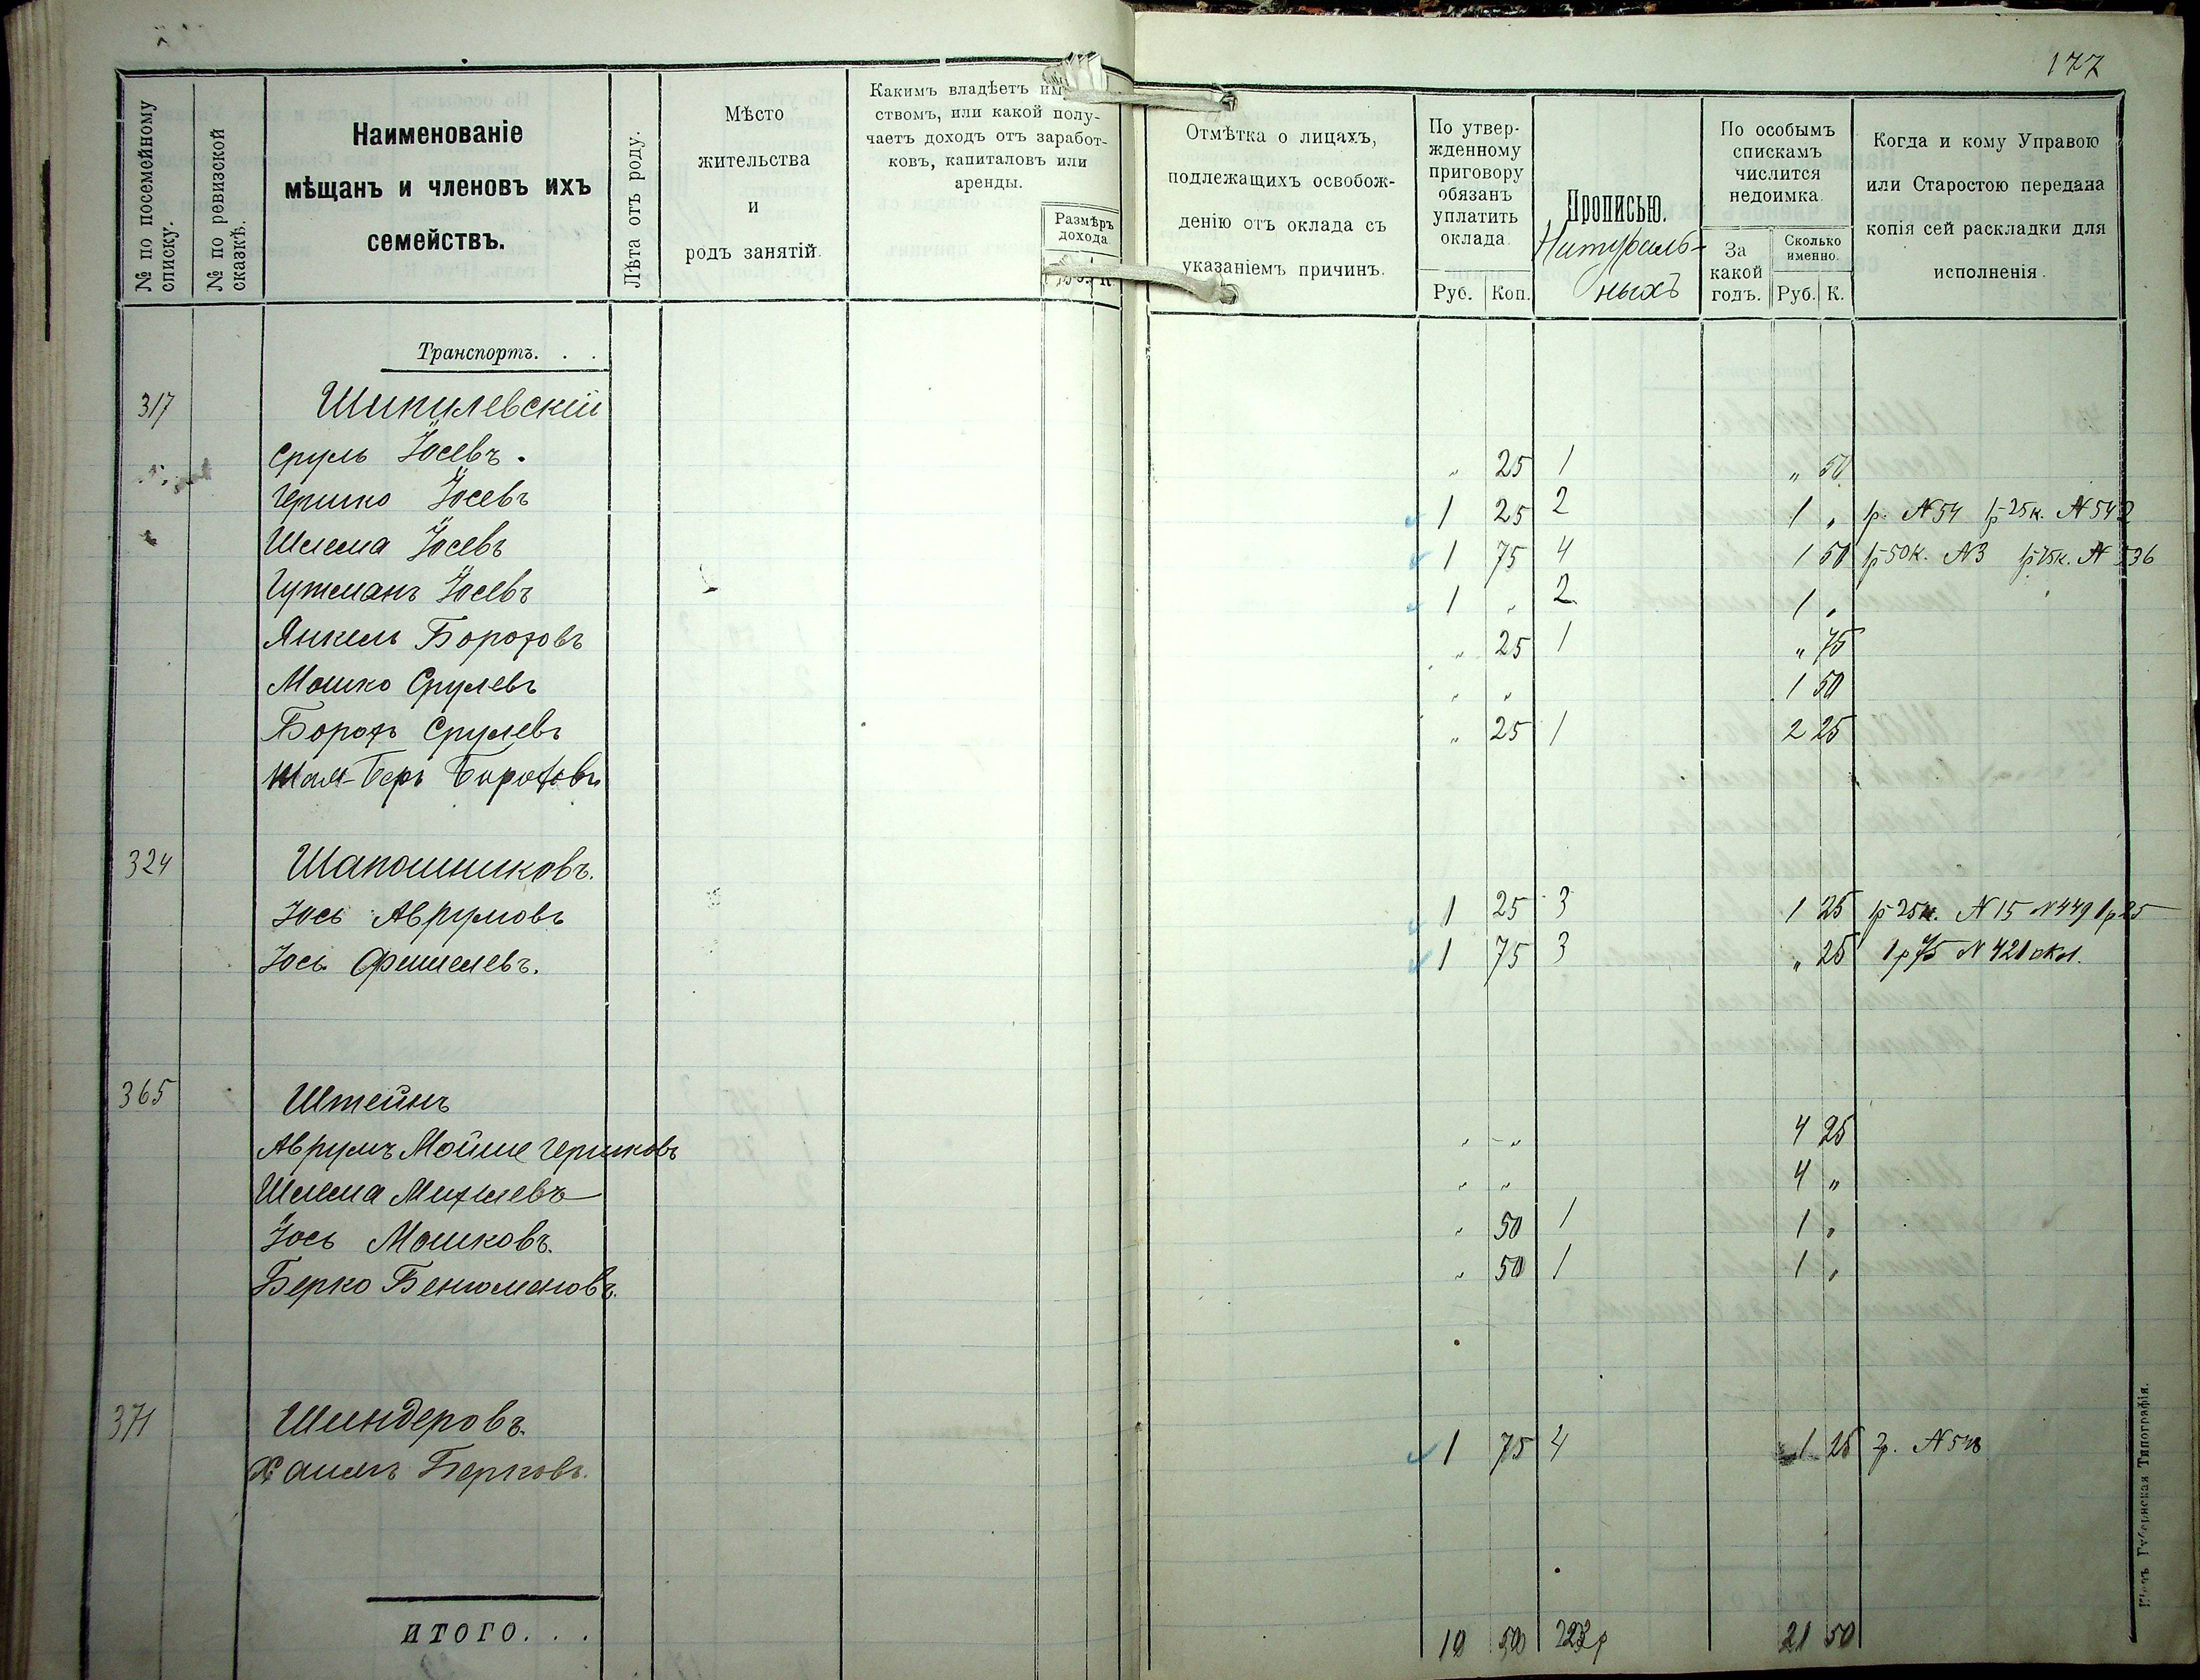 177
№ по посемейному списку.
№ по ревизской сказкѣ.
Наименованіе
мѣщанъ и членовъ ихъ
семействъ.
Лѣта отъ роду.
Мѣсто
жительства
и
родъ занятій.
Какимъ владѣетъ им
ствомъ, или какой полу-
чаетъ доходъ отъ заработ-
ковъ, капиталовъ или
аренды.
Размѣръ
дохода
Отмѣтка о лицахъ,
подлежащихъ освобож-
денію отъ оклада съ
указаніемъ причинъ.
По утвер-
жденному
приговору
обязанъ
уплатить
оклада.
Руб. Коп.
Прописью.
Натураль-
ныхъ
По особымъ
спискамъ
числится
недоимка.
За
какой
годъ.
Сколько
именно.
Руб. К.
Когда и кому Управою
или Старостою передана
копія сей раскладки для
исполненія.
Транспортъ. . .
317 Шипилевскій
Сруль Іосевъ. „ 25 1 „ 50
Гершко Іосевъ 1 25 2 1 „ 1р. № 54 1р 25к. № 542
Шлема Іосевъ 1 75 4 1 50 1р 50к. № 3 1р 75к. № 536
Гутманъ Іосевъ 1 „ 2 1 „
Янкель Бороховъ „ 25 1 „ 75
Мошко Срулевъ „ „ 1 50
Борохъ Срулевъ „ 25 1 2 25
Шам-Беръ Бороховъ
324 Шапошниковъ.
Іось Аврумовъ 1 25 3 1 25 1р 25к. № 15 № 449 1р 25
Іось Фишелевъ. 1 75 3 „ 25 1р 75 № 421 окл.
365 Штейнъ
Аврумъ Мойше Гершковъ „ „ 4 25
Шлема Михлевъ „ „ 4 „
Іось Мошковъ. „ 50 1 1 „
Берко Беньоминовъ. „ 50 1 1 „
371 Шиндеровъ.
Хаимъ Берковъ. 1 75 4 1 25 2р. №
ИТОГО. . .
10 50 21 50
Губернская Типографія.